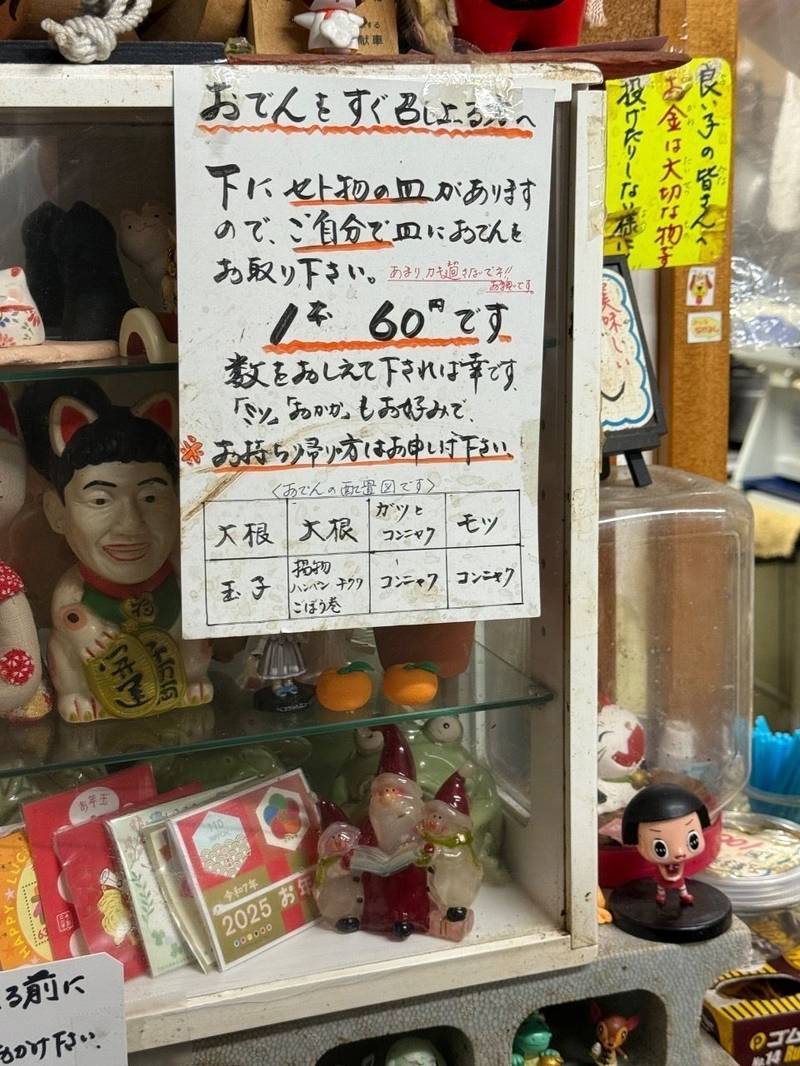 献車
おでんをすぐ召し上る方へ
下にセト物の皿があります
ので、ご自分で皿におでんを
お取り下さい。
1本 60円です
数をおしえて下されば幸です
「ミソ」「おかか」もお好みで、
※お持ち帰り方はお申し付下さい。
〈おでんの配置図です〉
大根 大根 ガツとコンニャク モツ
玉子 揚物 ハンペン チクワ ごぼう巻 コンニャク コンニャク
良い子の皆さんへ
お金は大切な物
投げたりしない様に
美味しい
開運
千万両
お年玉
HAPPY
63
令和7年
2025 お年
る前に
下さい。
ゴム
No.14